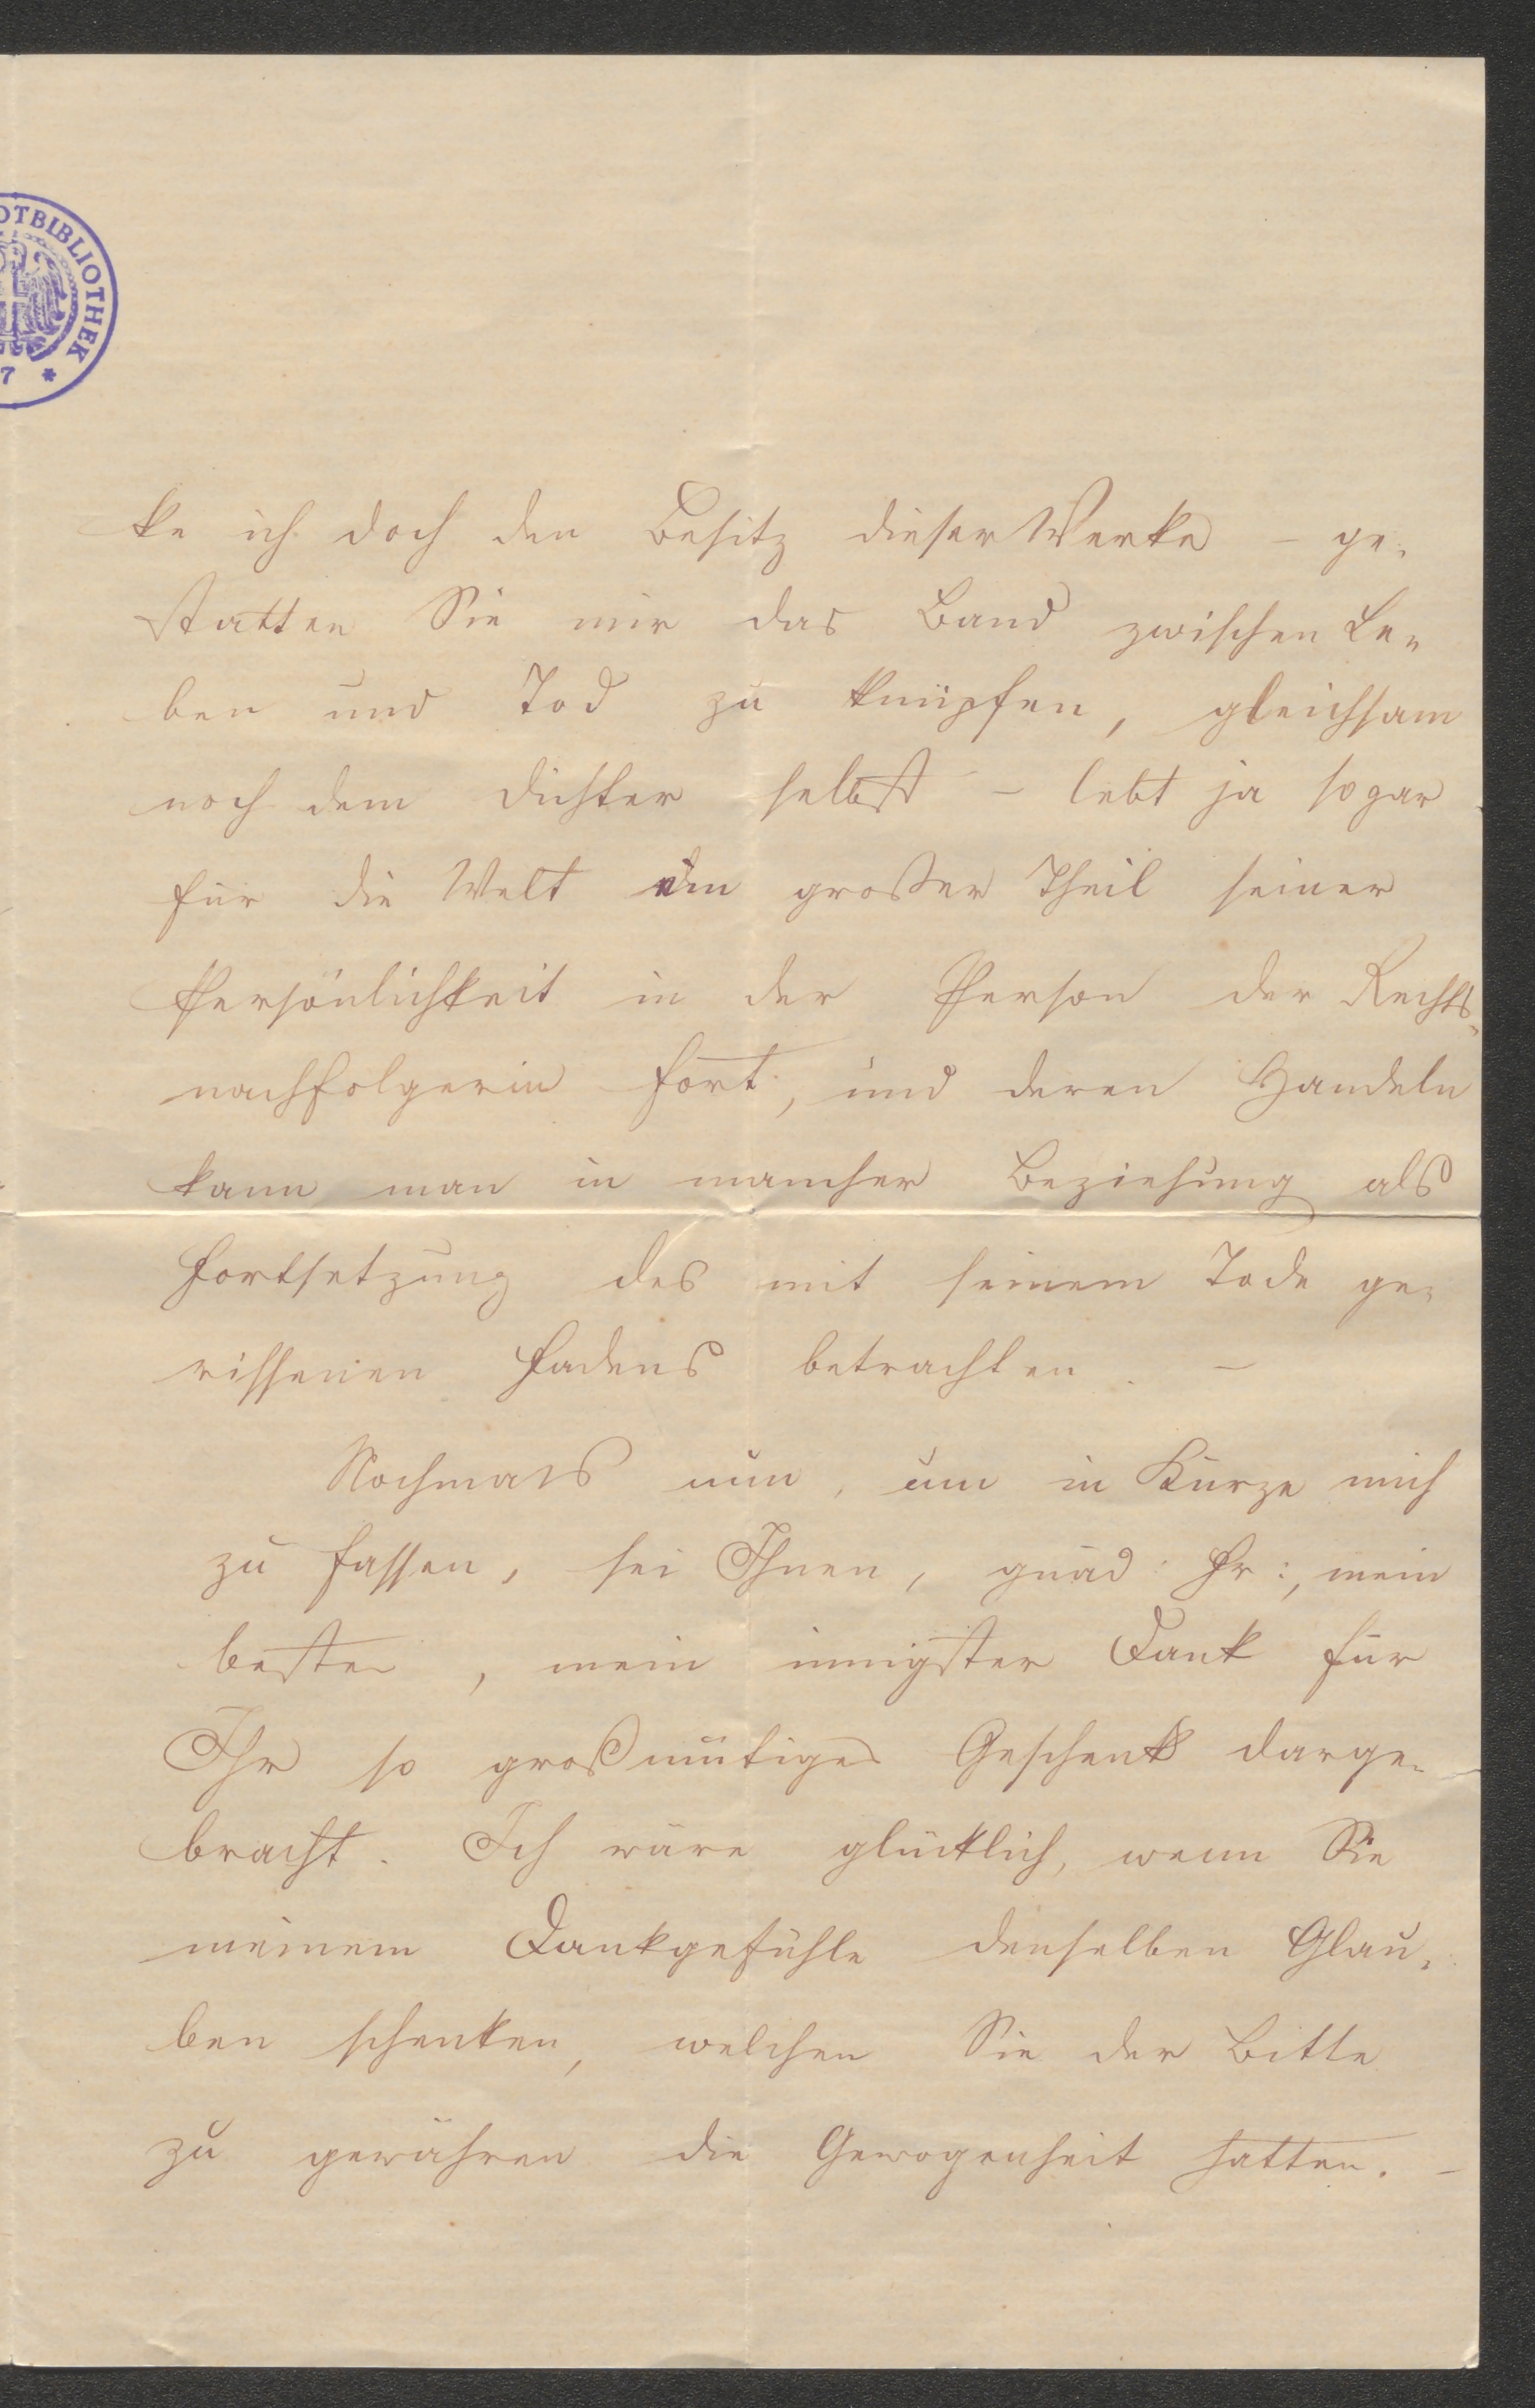 DTBIBLIOTHEK
7 *
ke ich doch den Besitz dieser Werke – ge-
statten Sie mir das Band zwischen Le-
ben und Tod zu knüpfen, gleichsam
noch dem Dichter selbst – lebt ja sogar
für die Welt ein großer Theil seiner
Persönlichkeit in der Person der Rechts-
nachfolgerin fort, und deren Handeln
kann man in mancher Beziehung als
Fortsetzung des mit seinem Tode ge-
rissenen Fadens betrachten. –
Nochmals nun, um in Kürze mich
zu fassen, sei Ihnen, gnäd: Fr:, mein
bester, mein innigster Dank für
Ihr so großmütiges Geschenk darge-
bracht. Ich wäre glücklich, wenn Sie
meinem Dankgefühle denselben Glau-
ben schenken, welchen Sie der Bitte
zu gewähren die Gewogenheit hatten. –